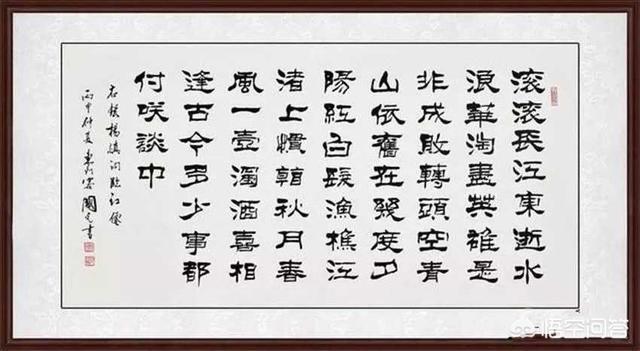 滚滚長江東逝水
浪華淘盡英雄是
非成敗轉頭空青
山依舊在幾度夕
陽紅白髮漁樵江
渚上慣看秋月春
風一壺濁酒喜相
逢古今多少事都
付咲談中
右錄楊慎詞臨江僊
丙申仲夏東國書
悟空问答